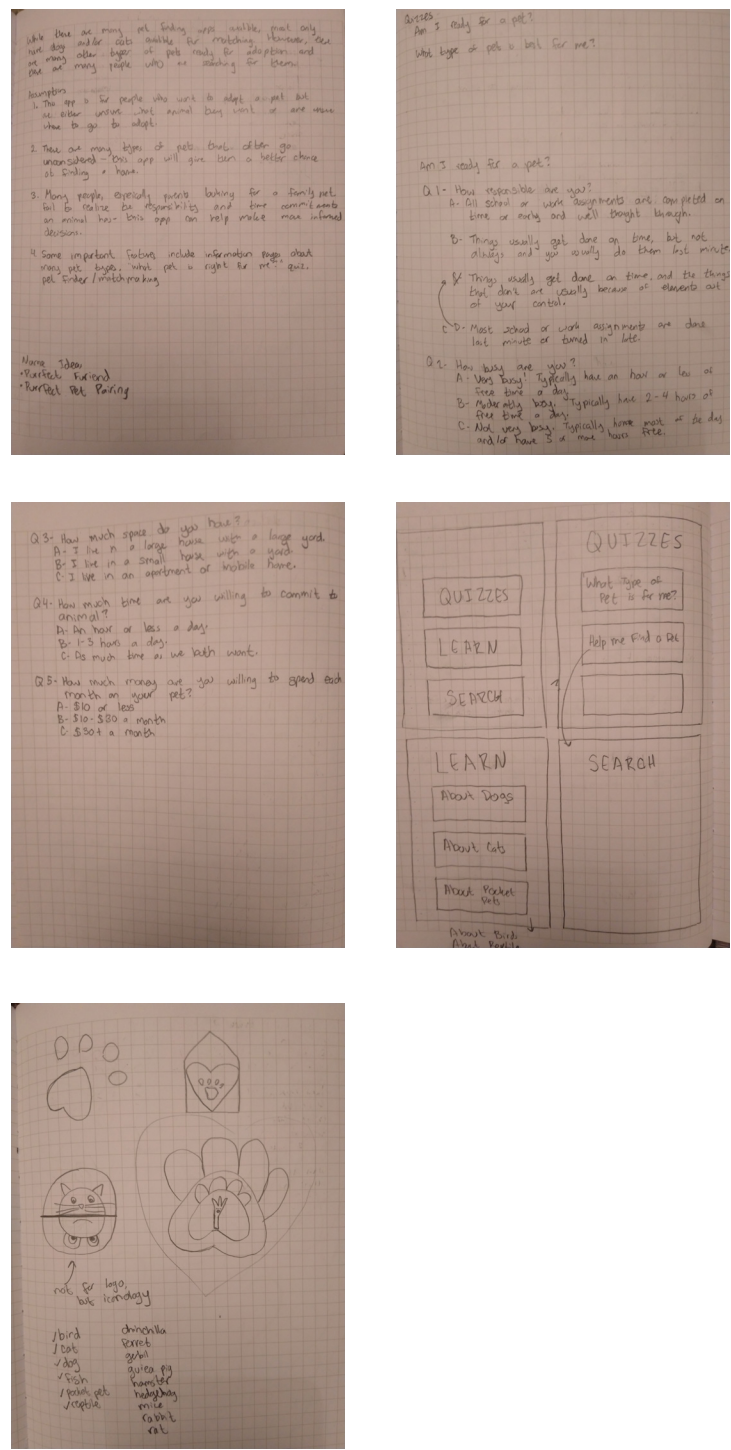 While there are many pet finding apps availible, most only
have dogs and/or cats availible for matching. However, there
are many other types of pets ready for adoption and
there are many people who are searching for them.
Assumptions
1. This app is for people who want to adopt a pet but
are either unsure what animal they want or are
where to go to adopt.
2. There are many types of pets that often go
unconsidered - this app will give them a better chance
at finding a home.
3. Many people, especially parents looking for a family pet
fail to realize the responsibility and time commitments
an animal has - this app can help make more informed
decisions.
4. Some important features include information pages about
many pet types, "what pet is right for me" quiz,
pet finder/matchmaking
Name Ideas
• Purrfect Furiend
• Purrfect Pet Pairing
Quizzes
Am I ready for a pet?
What type of pets is best for me?
Am I ready for a pet?
Q1- How responsible are you?
A- All school or work assignments are completed on
time or early and well thought through.
B- Things usually get done on time, but not
always and you usually do them last minute
Things usually get done on time, and the things
that don't are usually because of elements out
of your control.
C D- Most school or work assignments are done
last minute or turned in late.
Q2- How busy are you?
A- Very busy! Typically have an hour or less of
free time a day.
B- Moderatly busy. Typically have 2-4 hours of
free time a day.
C- Not very busy. Typically home most of the day
and/or have 5 or more hours free.
Q3- How much space do you have?
A- I live in a large house with a large yard.
B- I live in a small house with a yard.
C- I live in an apartment or mobile home.
Q4- How much time are you willing to commit to
animal?
A- An hour or less a day.
B- 1-3 hours a day.
C- As much time as we both want.
Q5- How much money are you willing to spend each
month on your pet?
A- $10 or less
B- $10-$30 a month
C- $30+ a month
QUIZZES
LEARN
SEARCH
QUIZZES
What Type of
Pet is for me?
Help me Find a Pet
LEARN
About Dogs
About Cats
About Pocket
Pets
About Birds
About Reptile
SEARCH
not for logo,
but iconology
✓bird
✓cat
✓dog
✓fish
✓pocket pet
✓reptile
chinchilla
ferret
gerbil
guiea pig
hamster
hedgehog
mice
rabbit
rat